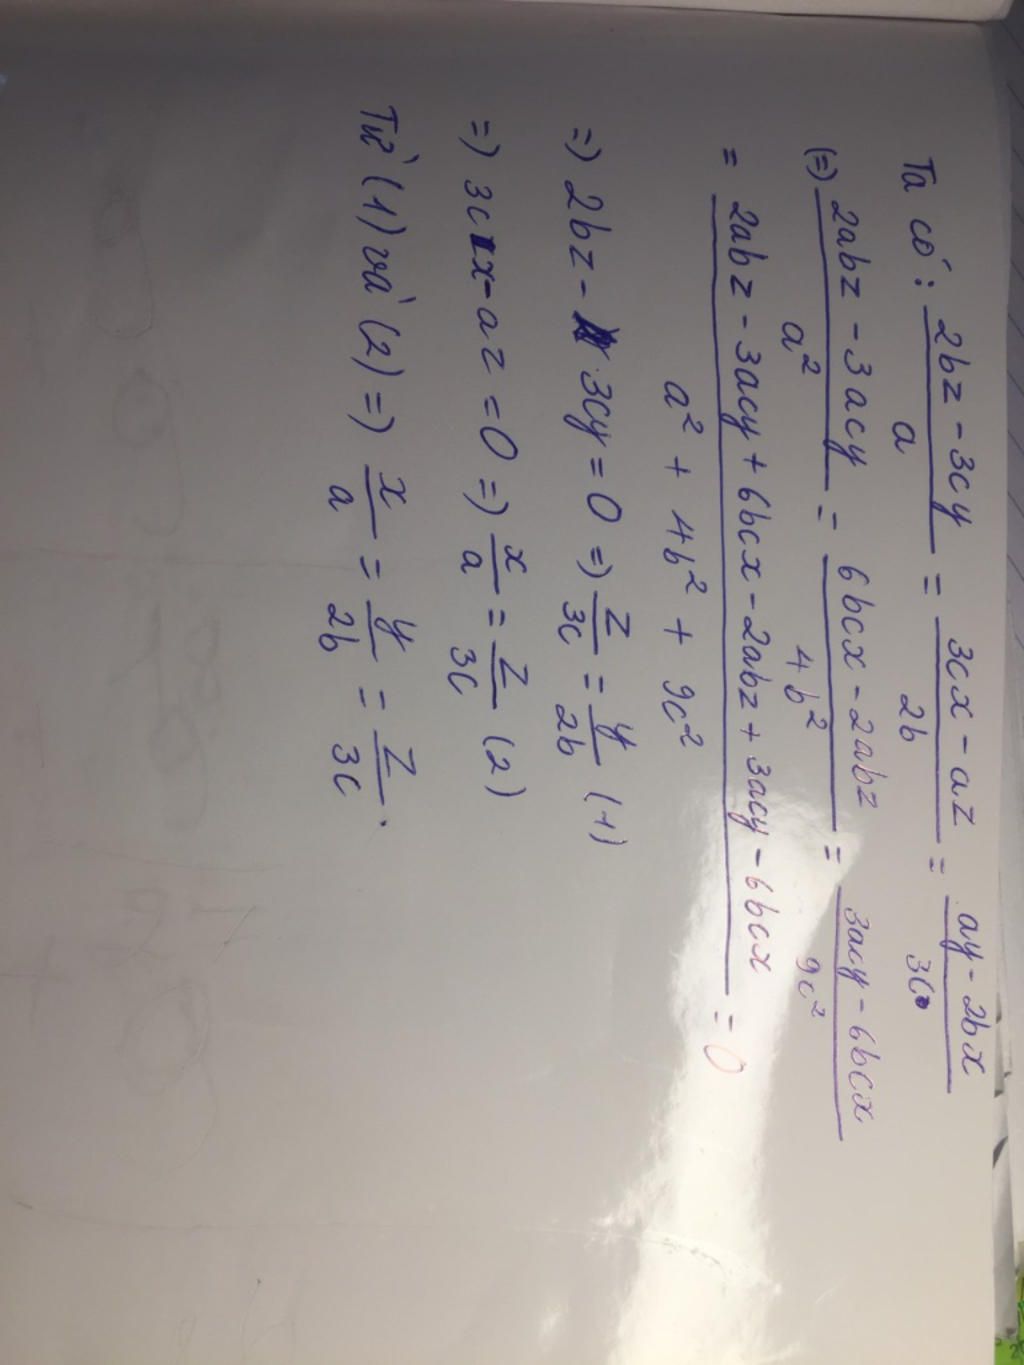 Ta có: \frac{2bz - 3cy}{a} = \frac{3cx - az}{2b} = \frac{ay - 2bx}{3c}
(=) \frac{2abz - 3acy}{a^2} = \frac{6bcx - 2abz}{4b^2} = \frac{3acy - 6bcx}{9c^2}
= \frac{2abz - 3acy + 6bcx - 2abz + 3acy - 6bcx}{a^2 + 4b^2 + 9c^2} = 0
=) 2bz - 3cy = 0 =) \frac{z}{3c} = \frac{y}{2b} (1)
=) 3cx - az = 0 =) \frac{x}{a} = \frac{z}{3c} (2)
Từ (1) và (2) =) \frac{x}{a} = \frac{y}{2b} = \frac{z}{3c}.